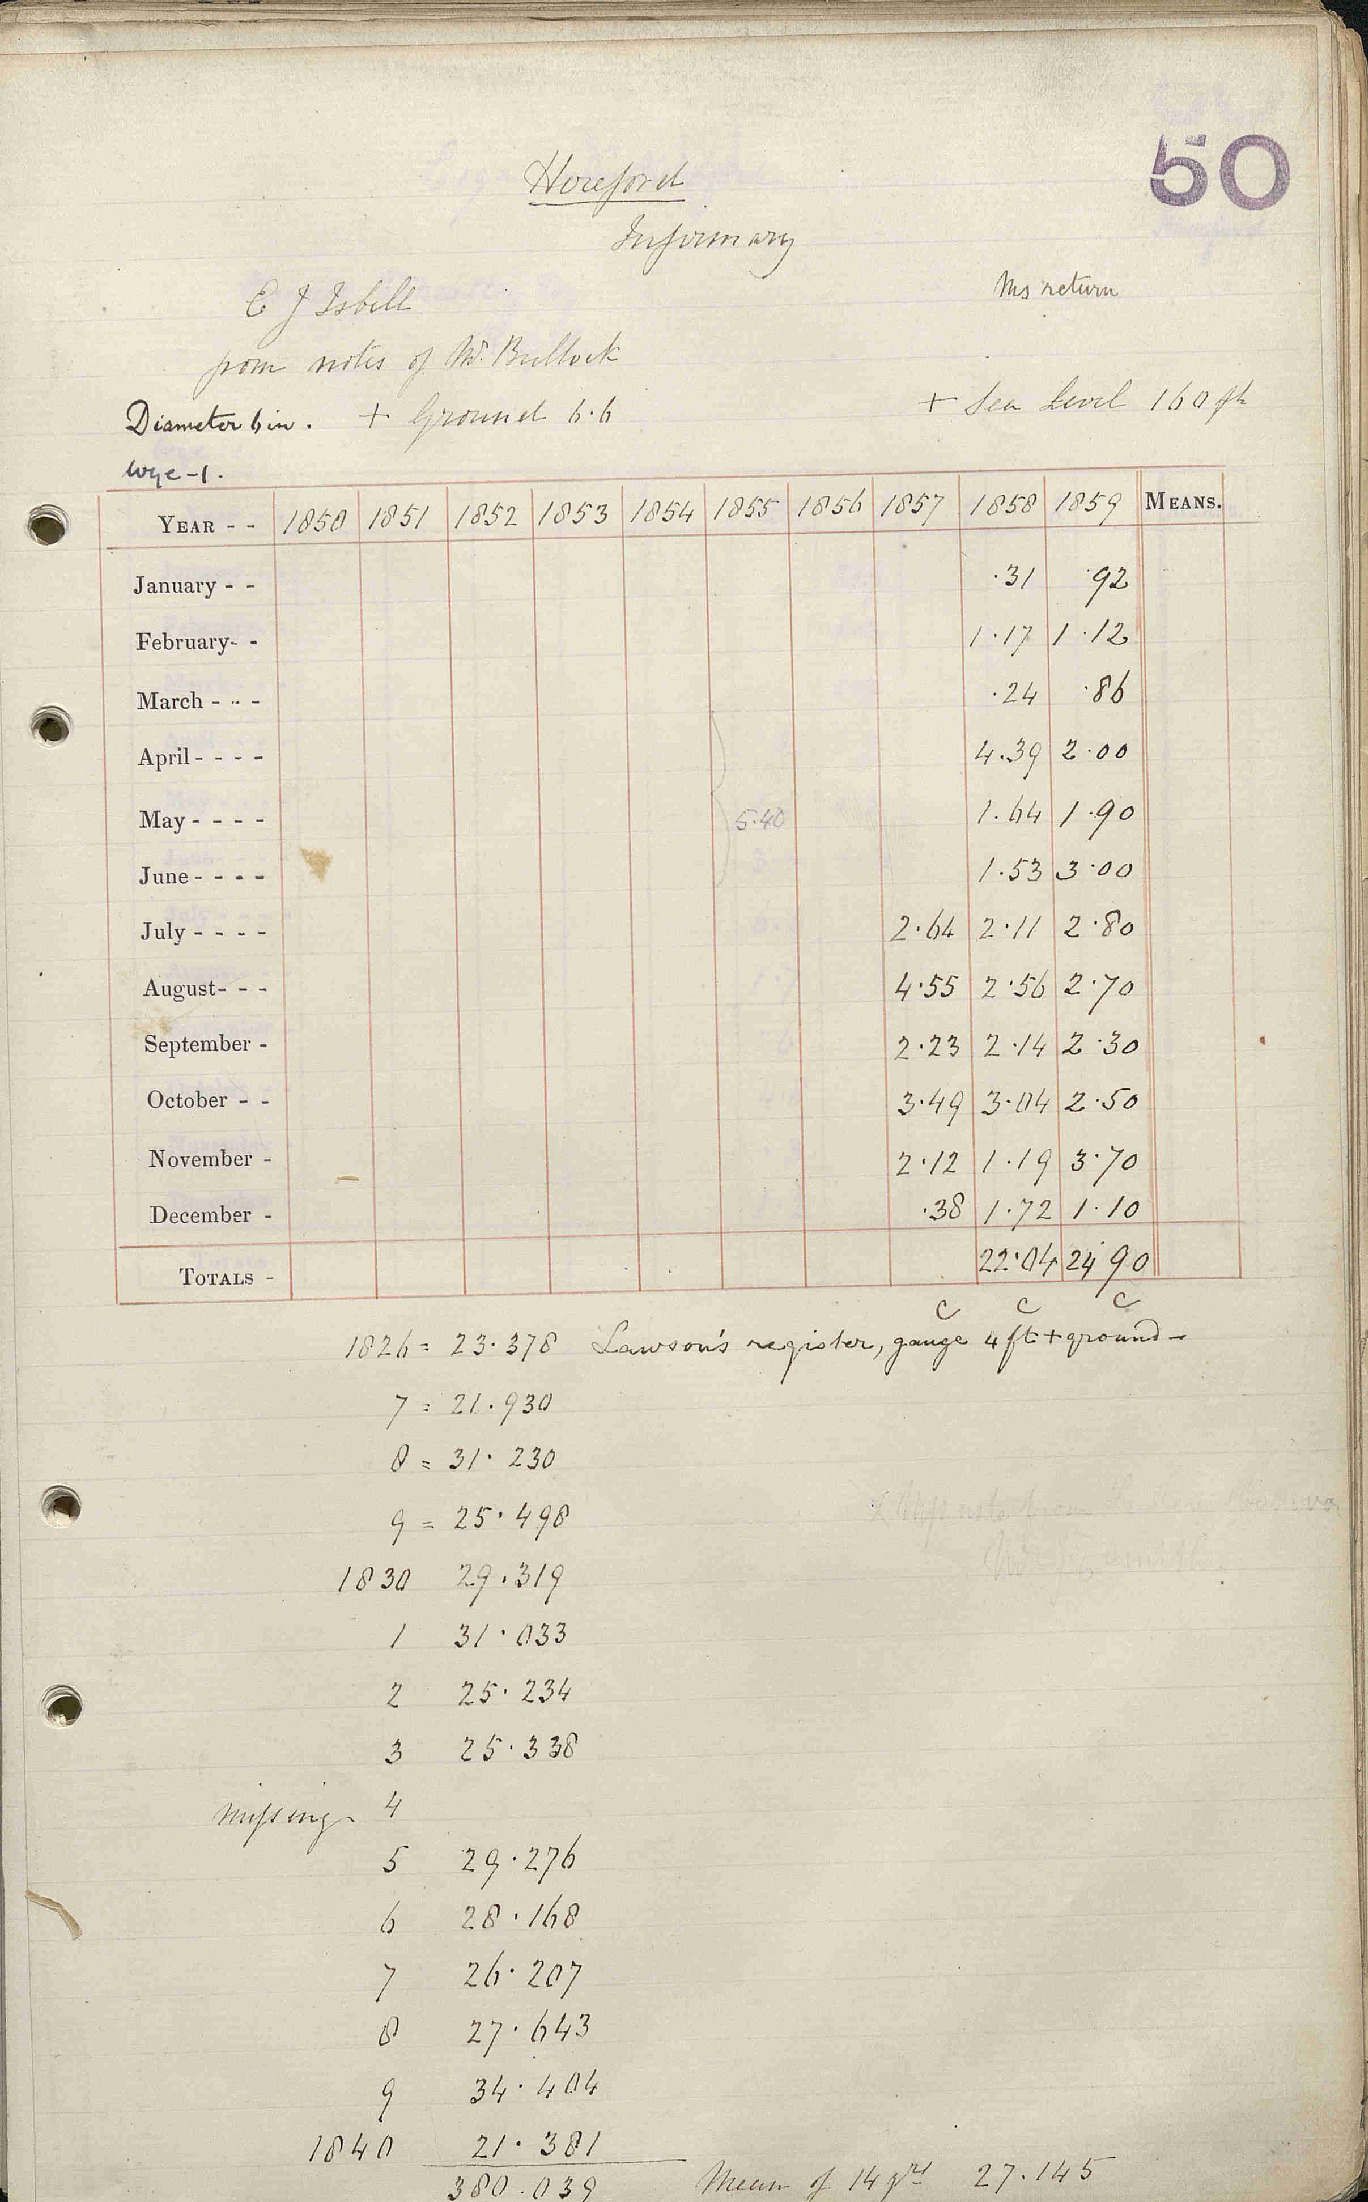 50
Hereford
Infirmary
C J Isbell
Ms return
from notes of Mr. Bullock
Diameter 6 in. + Ground 6.6 + Sea Level 160 ft
Wye-1.
YEAR - - 1850 1851 1852 1853 1854 1855 1856 1857 1858 1859 MEANS.
January - - .31 .92
February- - 1.17 1.12
March - - - .24 .86
April - - - - 4.39 2.00
May - - - - 5.40 1.64 1.90
June - - - - 1.53 3.00
July - - - - 2.64 2.11 2.80
August- - - 4.55 2.56 2.70
September - 2.23 2.14 2.30
October - - 3.49 3.04 2.50
November - 2.12 1.19 3.70
December - .38 1.72 1.10
TOTALS - 22.04 24.90
C C C
1826 = 23.378 Lawson's register, gauge 4 ft + ground -
7 = 21.930
8 = 31.230
9 = 25.498
1830 29.319
1 31.033
2 25.234
3 25.338
missing 4
5 29.276
6 28.168
7 26.207
8 27.643
9 34.404
1840 21.381
380.039 Mean of 14 yrs 27.145